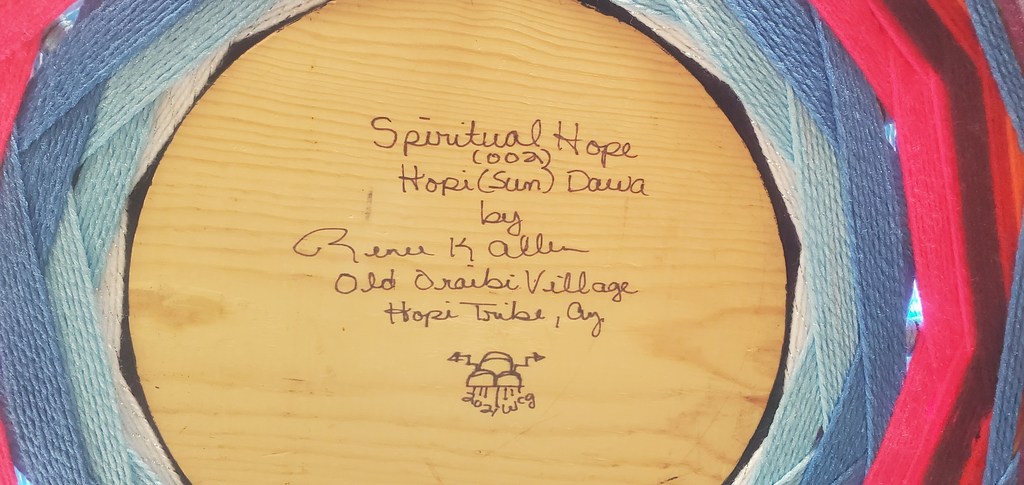 Spiritual Hope
(002)
Hopi (Sun) Dawa
by
Renee K Allen
Old Oraibi Village
Hopi Tribe, Az.
2021 wcg